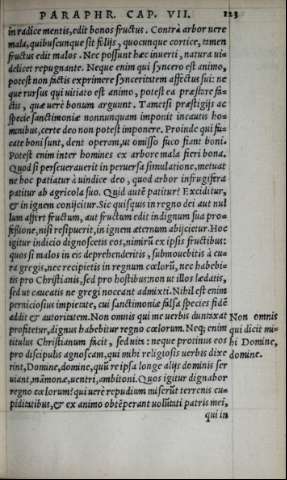 PARAPHR. CAP. VII. 223
in radice mentis, edit bonos fructus. Contrà arbor uere
mala, quibuscunque sit folijs, quocunque cortice, tamen
fructus edit malos. Nec possunt hæc inuerti, natura ui-
delicet repugnante. Neque enim qui syncero est animo,
potest non factis exprimere synceritatem affectus sui: ne
que rursus qui uitiato est animo, potest ea præstare fa-
ctis, quæ uerè bonum arguunt. Tametsi præstigijs ac
specie sanctimoniæ nonnunquam imponit incautis ho-
minibus, certe deo non potest imponere. Proinde qui fu-
cate boni sunt, dent operam, ut omisso fuco fiant boni.
Potest enim inter homines ex arbore mala fieri bona.
Quod si perseuerauerit in peruersa simulatione, metuat
ne hoc patiatur à uindice deo, quod arbor infrugifera
patitur ab agricola suo. Quid autē patitur? Exciditur,
& in ignem conijcitur. Sic quisquis in regno dei aut nul
lum affert fructum, aut fructum edit indignum sua pro-
fessione, nisi resipuerit, in ignem æternum abijcietur. Hoc
igitur indicio dignoscetis eos, nimirū ex ipsis fructibus:
quos si malos in eis deprehenderitis, submouebitis à cu
ra gregis, nec recipietis in regnum cœlorū, nec habebi-
tis pro Christianis, sed pro hostibus: non ut illos lædatis,
sed ut caueatis ne gregi noceant admixti. Nihil est enim
perniciosius impietate, cui sanctimoniæ falsa species fidē
addit & autoritatem. Non omnis qui me uerbis duntaxat
profitetur, dignus habebitur regno cœlorum. Neq; enim
titulus Christianum facit, sed uita: neque protinus eos
pro discipulis agnoscam, qui mihi religiosis uerbis dixe
rint, Domine, domine, quū re ipsa longe alijs dominis ser
uiant, māmonæ, uentri, ambitioni. Quos igitur dignabor
regno cœlorum? qui uerè repudium miserūt terrenis cu-
piditatibus, & ex animo obtēperant uolūtati patris mei,
qui in
Non omnis
qui dicit mi-
hi Domine,
domine.